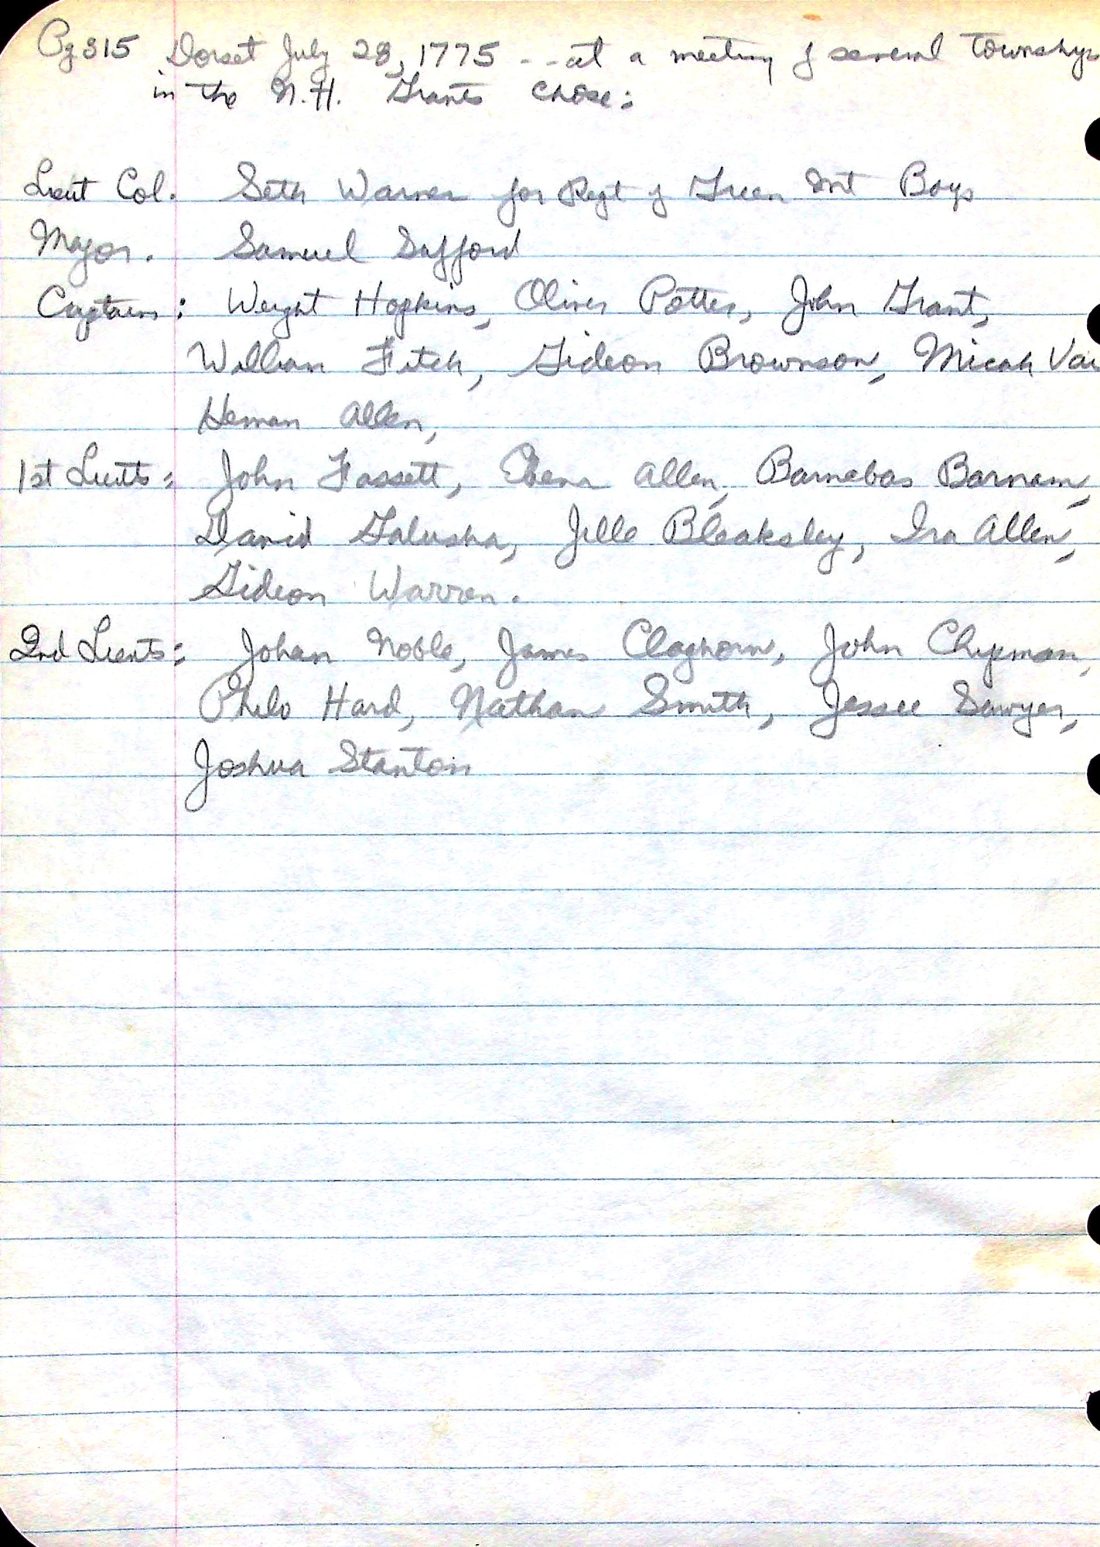 Pg 315 Dorset July 28, 1775 -- at a meeting of several townships
in the N.H. Grants chose:
Lieut Col. Seth Warner for Regt of Green Mt Boys
Major. Samuel Safford
Captains: Weight Hopkins, Oliver Potter, John Grant,
William Fitch, Gideon Brownson, Micah Vai
Heman Allen,
1st Lieuts: John Fassett, Ebenr Allen, Barnebas Barnam,
David Galusha, Jille Bleaksley, Ira Allen,
Gideon Warren.
2nd Lieuts: Johan Noble, James Claghorn, John Chipman,
Philo Hard, Nathan Smith, Jessee Sawyer,
Joshua Stanton